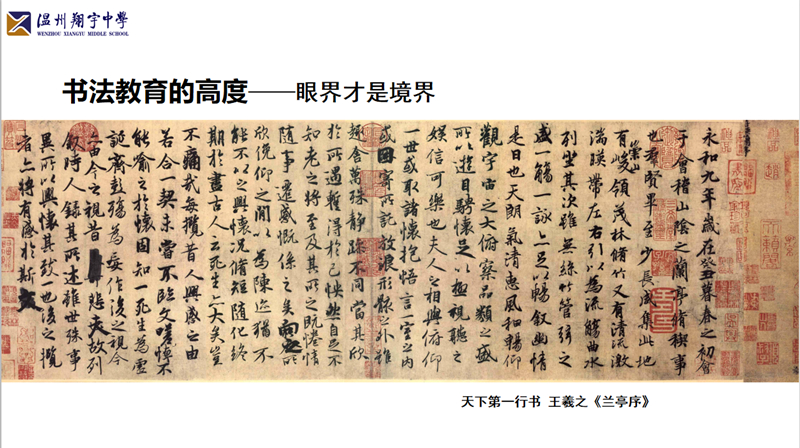 温州翔宇中學
WENZHOU XIANGYU MIDDLE SCHOOL
书法教育的高度——眼界才是境界
永和九年歲在癸丑暮春之初會
于會稽山陰之蘭亭脩稧事
也羣賢畢至少長咸集此地
有崇山峻領茂林脩竹又有清流激
湍暎帶左右引以為流觴曲水
列坐其次雖無絲竹管弦之
盛一觴一詠亦足以暢敘幽情
是日也天朗氣清惠風和暢仰
觀宇宙之大俯察品類之盛
所以遊目騁懷足以極視聽之
娛信可樂也夫人之相與俯仰
一世或取諸懷抱悟言一室之內
或因寄所託放浪形骸之外雖
趣舍萬殊靜躁不同當其欣
於所遇蹔得於己怏然自足不
知老之將至及其所之既惓情
隨事遷感慨係之矣向之所
欣俛仰之閒以為陳迹猶不
能不以之興懷況脩短隨化終
期於盡古人云死生亦大矣豈
不痛哉每攬昔人興感之由
若合一契未嘗不臨文嗟悼不
能喻之於懷固知一死生為虛
誕齊彭殤為妄作後之視今
亦由今之視昔悲夫故列
敘時人錄其所述雖世殊事
異所以興懷其致一也後之攬
者亦將有感於斯文
天下第一行书 王羲之《兰亭序》